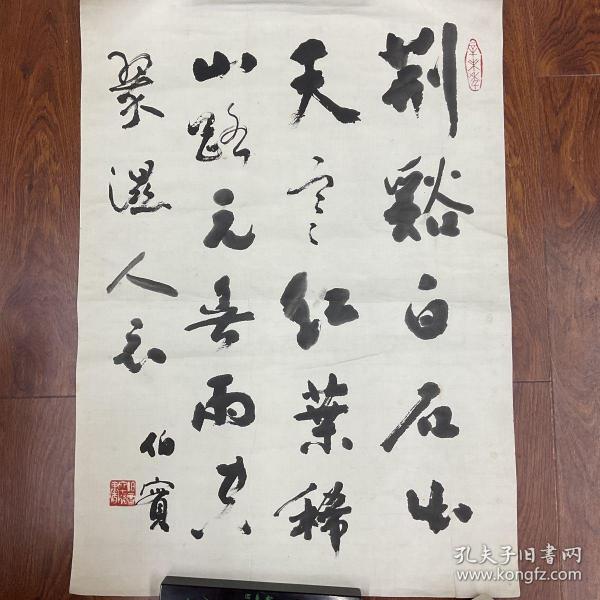 荆谿白石出
天寒红葉稀
山路元无雨空
翠湿人衣
伯賓
辛未年
孔夫子旧书网
www.kongfz.com